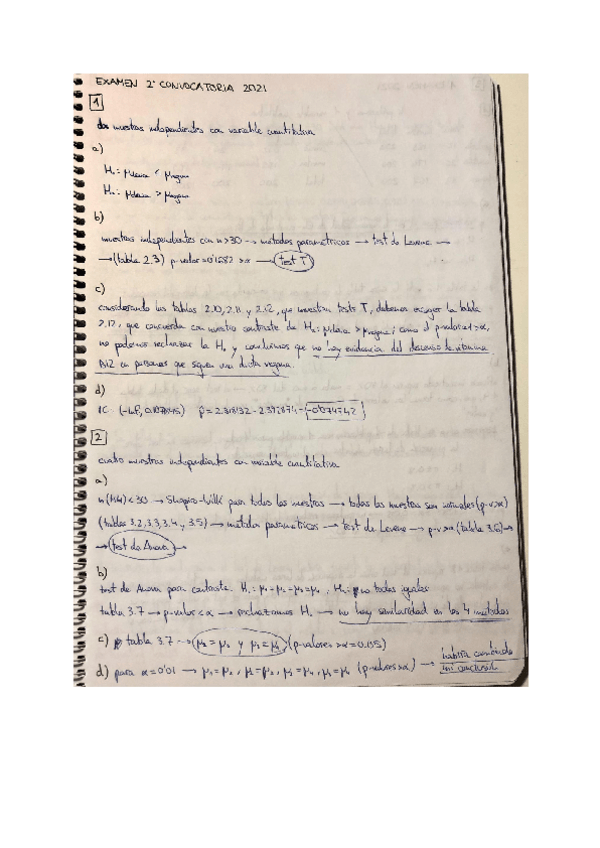 EXAMEN 2ª CONVOCATORIA 2021
1
dos muestras independientes con variable cuantitativa
a)
H₀: μclásica < μvegana
H₁: μclásica > μvegana
b)
muestras independientes con n>30 → métodos paramétricos → test de Levene →
→ (tabla 2.3) p-valor=0'1682 >α → test T
c)
considerando las tablas 2.10, 2.11 y 2.12, que muestran tests T, debemos escoger la tabla
2.12, que concuerda con nuestro contraste de H₁: μclásica > μvegana; como el p-valor >α,
no podemos rechazar la H₀ y concluimos que no hay evidencia del descenso de vitamina
B12 en personas que siguen una dieta vegana.
d)
IC
2
cuatro muestras independientes con variable cuantitativa
a)
<30 → Shapiro-Wilk para todas las muestras → todas las muestras son normales (p-v>α)
(tablas 3.2, 3.3, 3.4 y 3.5) → métodos paramétricos → test de Levene → p-v>α (tabla 3.6) →
→ test de Anova
b)
test de Anova para contraste. H₀: μ₁=μ₂=μ₃=μ₄ , H₁: no todas iguales
tabla 3.7 → p-valor<α → rechazamos H₀ → no hay similaridad en los 4 métodos
c) tabla 3.7 → (p-valores >α=0.05)
d) para α=0'01 → (p-valores>α) → habría cambiado
mi conclusión